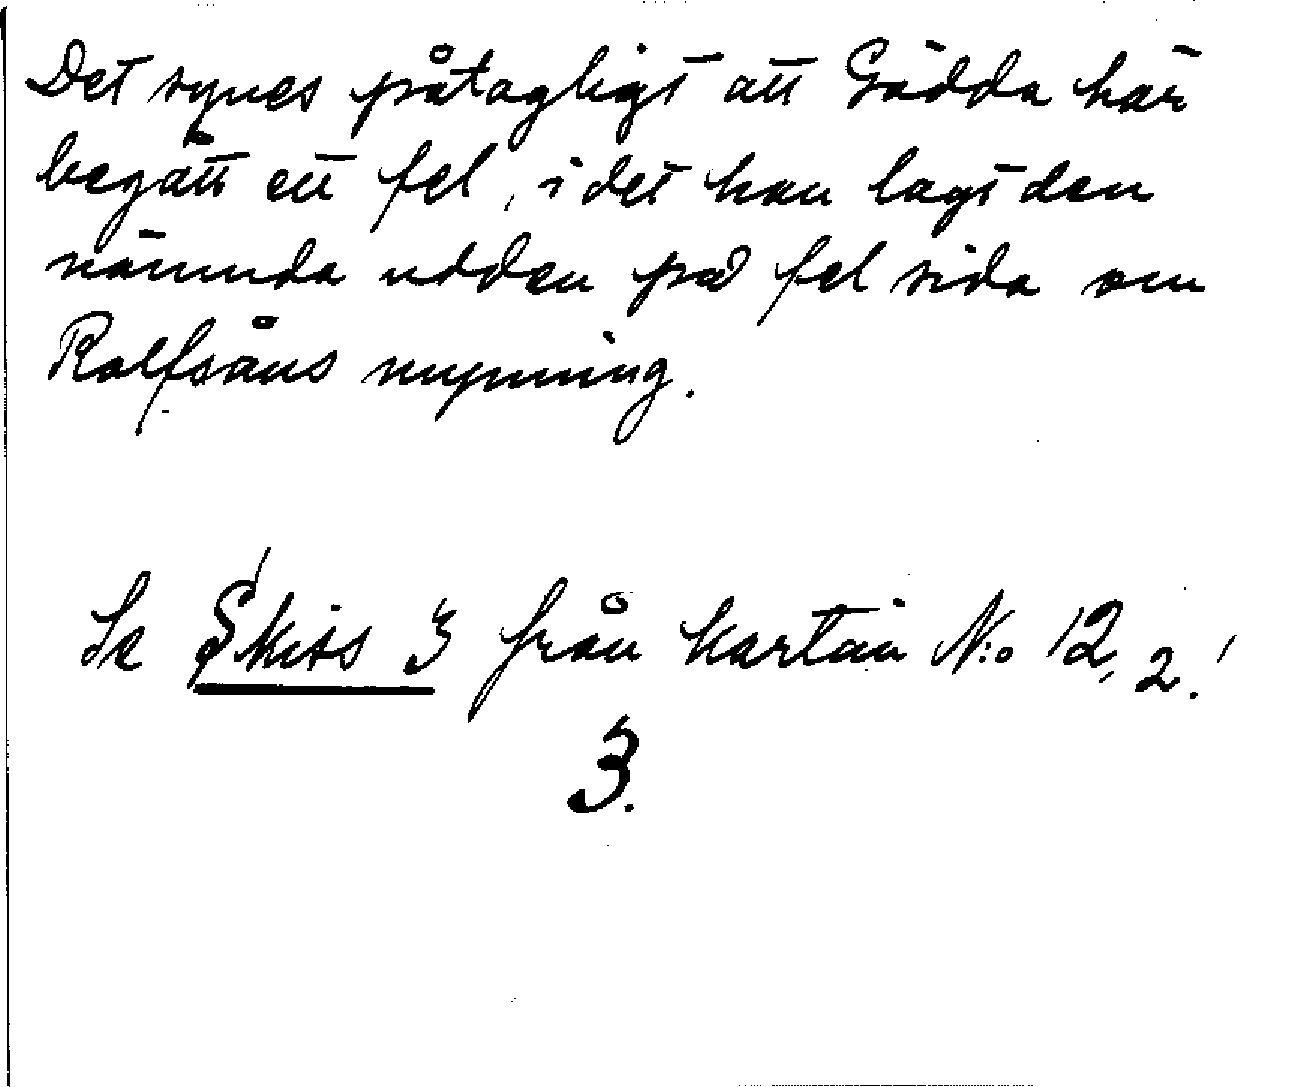 Det synes påtagligt att Gädda här
begått ett fel, i det han lagt den
nämnda udden på fel sida om
Rolfsåns mynning.
Se Skiss 3 från kartan N:o 12, 2.!
3.